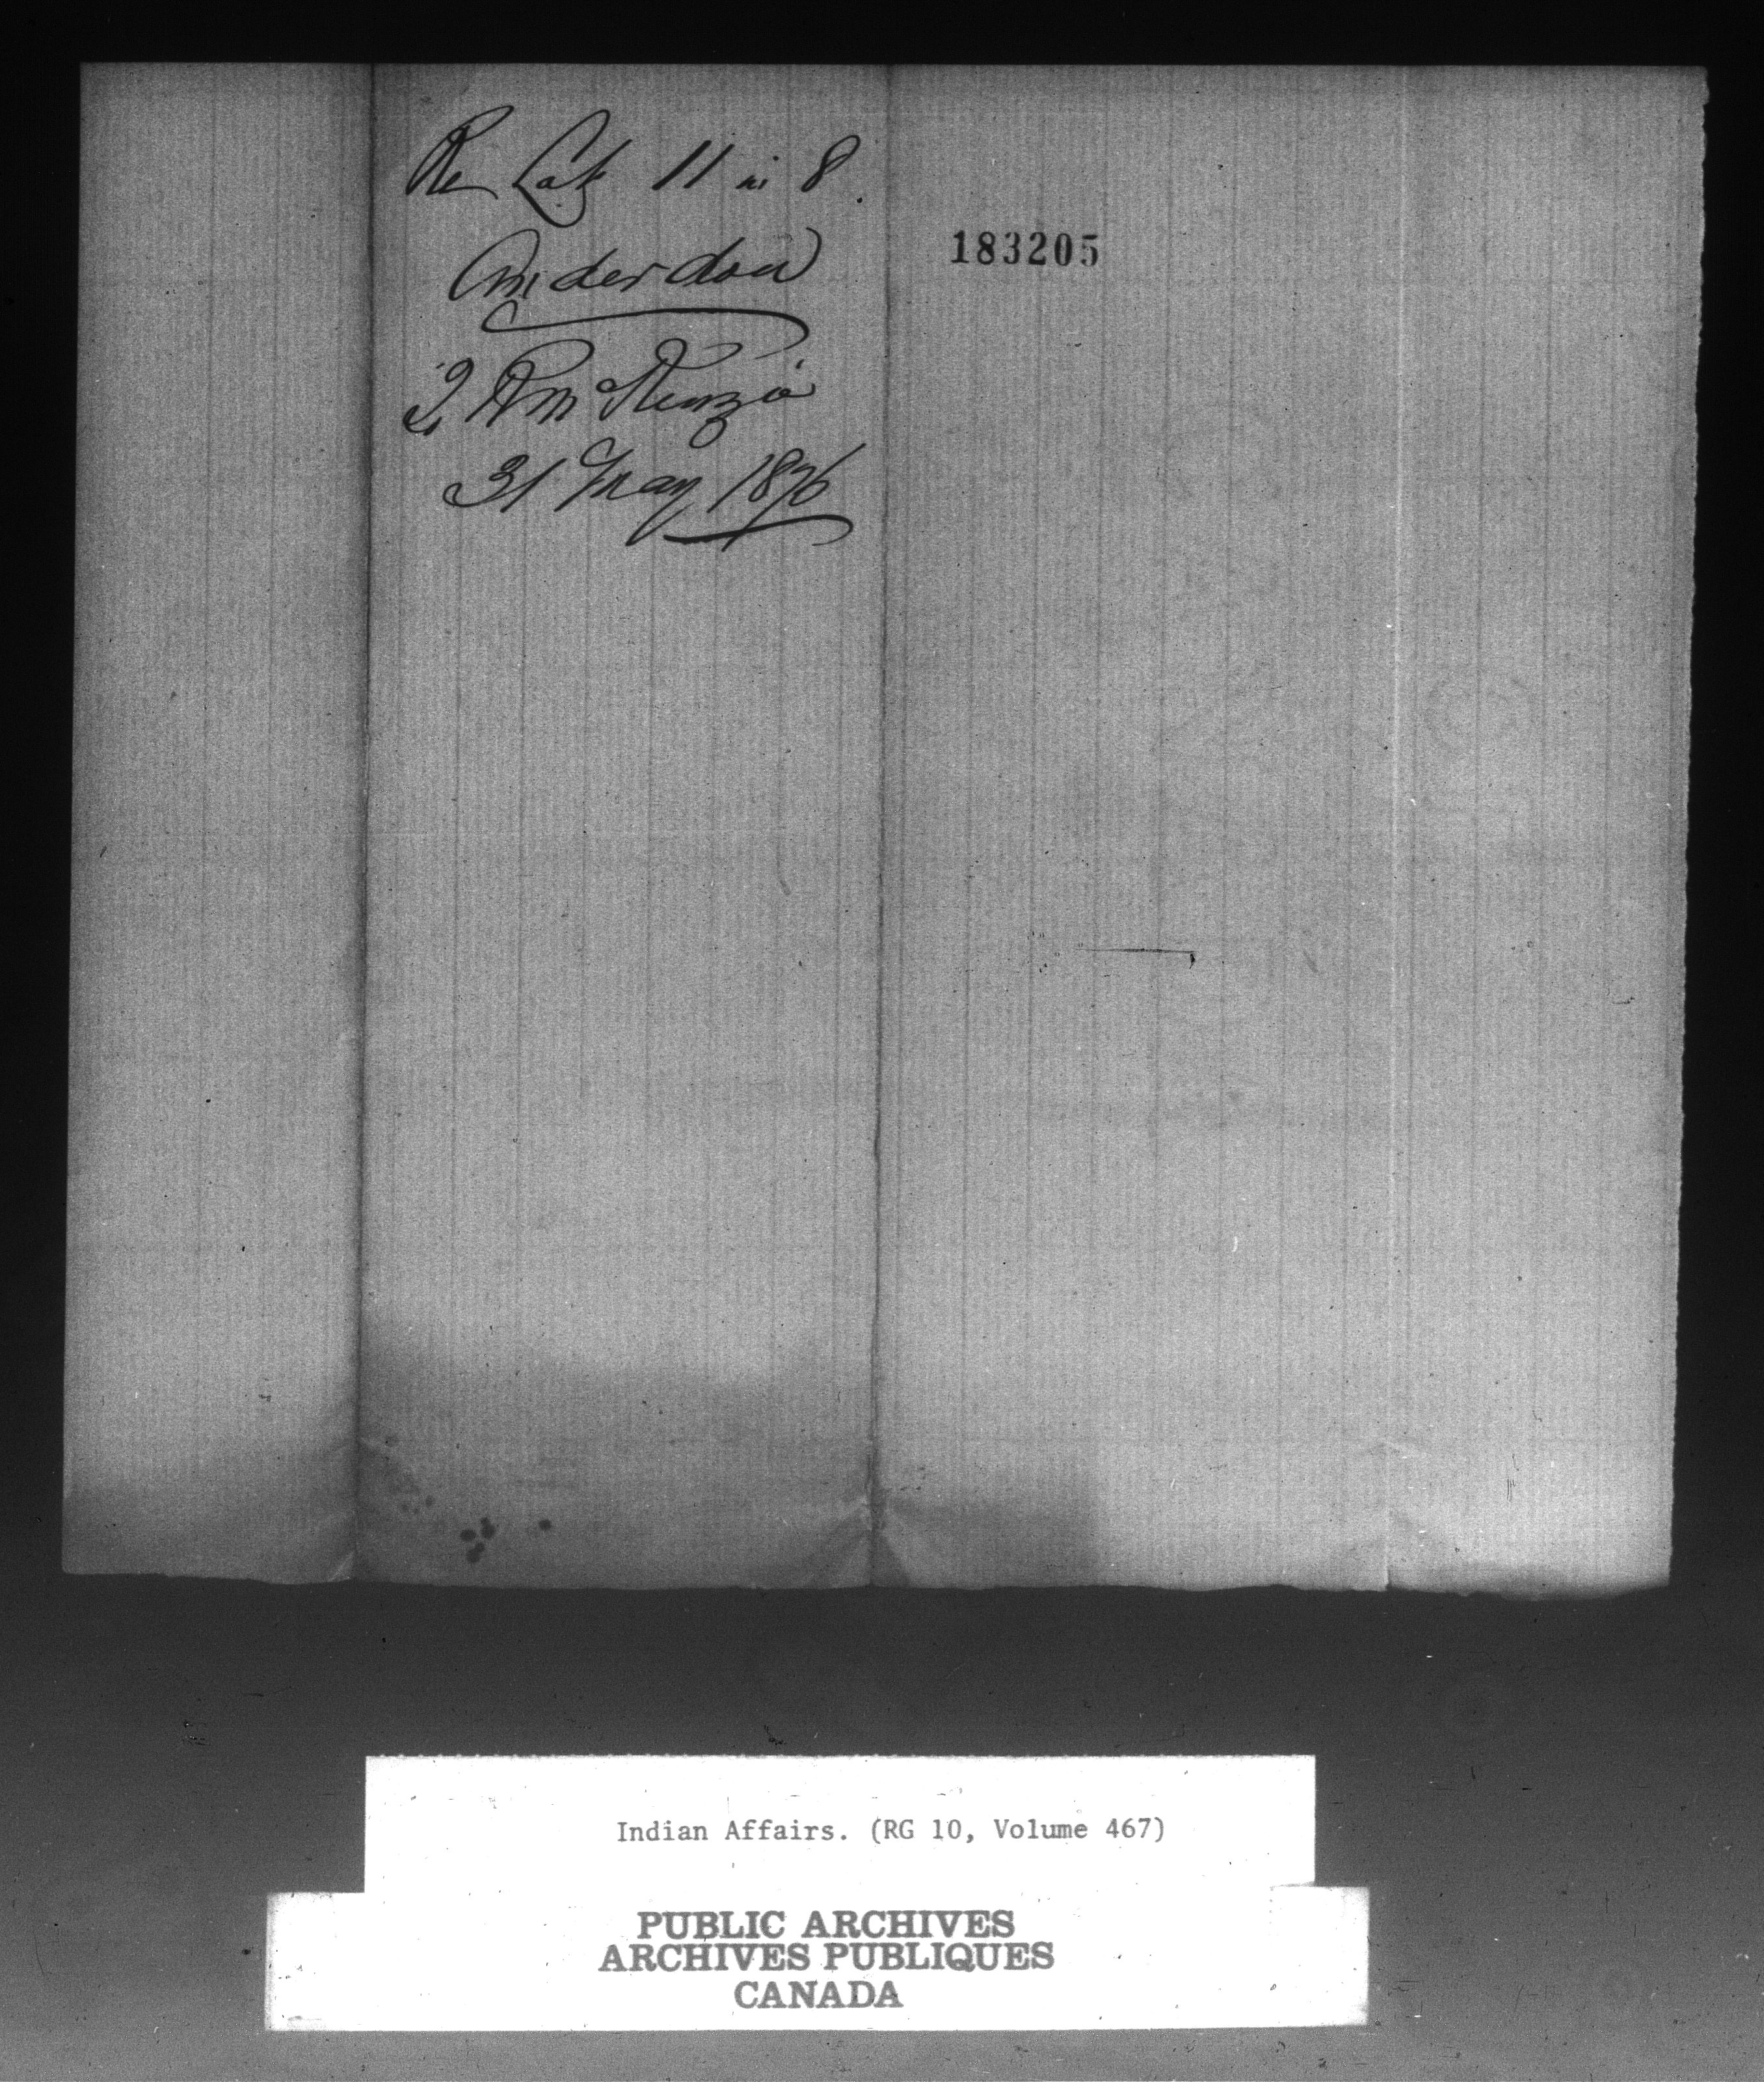 Re Lot 11 in 8
Anderdon
McKenzie
31 May 1876
183205
Indian Affairs. (RG 10, Volume 467)
PUBLIC ARCHIVES
ARCHIVES PUBLIQUES
CANADA